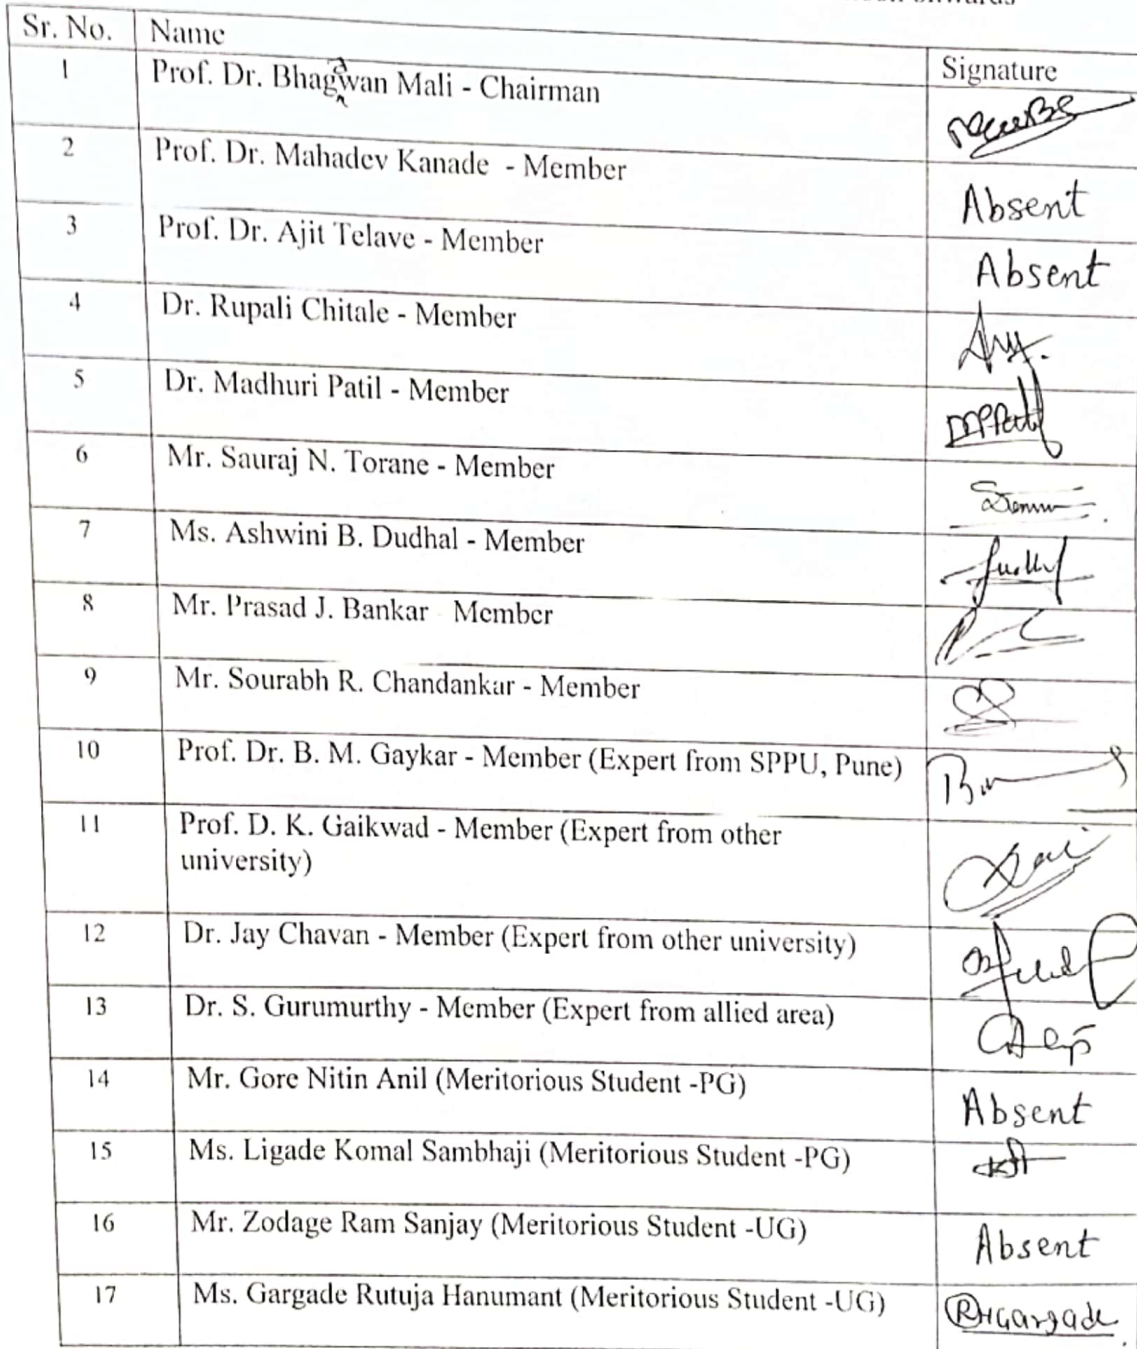 onwards
Sr. No. Name Signature
1 Prof. Dr. Bhagwan Mali - Chairman
a
2 Prof. Dr. Mahadev Kanade - Member Absent
3 Prof. Dr. Ajit Telave - Member Absent
4 Dr. Rupali Chitale - Member
5 Dr. Madhuri Patil - Member MPPatil
6 Mr. Sauraj N. Torane - Member
7 Ms. Ashwini B. Dudhal - Member
8 Mr. Prasad J. Bankar Member
9 Mr. Sourabh R. Chandankar - Member
10 Prof. Dr. B. M. Gaykar - Member (Expert from SPPU, Pune)
11 Prof. D. K. Gaikwad - Member (Expert from other
university)
12 Dr. Jay Chavan - Member (Expert from other university)
13 Dr. S. Gurumurthy - Member (Expert from allied area)
14 Mr. Gore Nitin Anil (Meritorious Student -PG) Absent
15 Ms. Ligade Komal Sambhaji (Meritorious Student -PG)
16 Mr. Zodage Ram Sanjay (Meritorious Student -UG) Absent
17 Ms. Gargade Rutuja Hanumant (Meritorious Student -UG) RHGargade